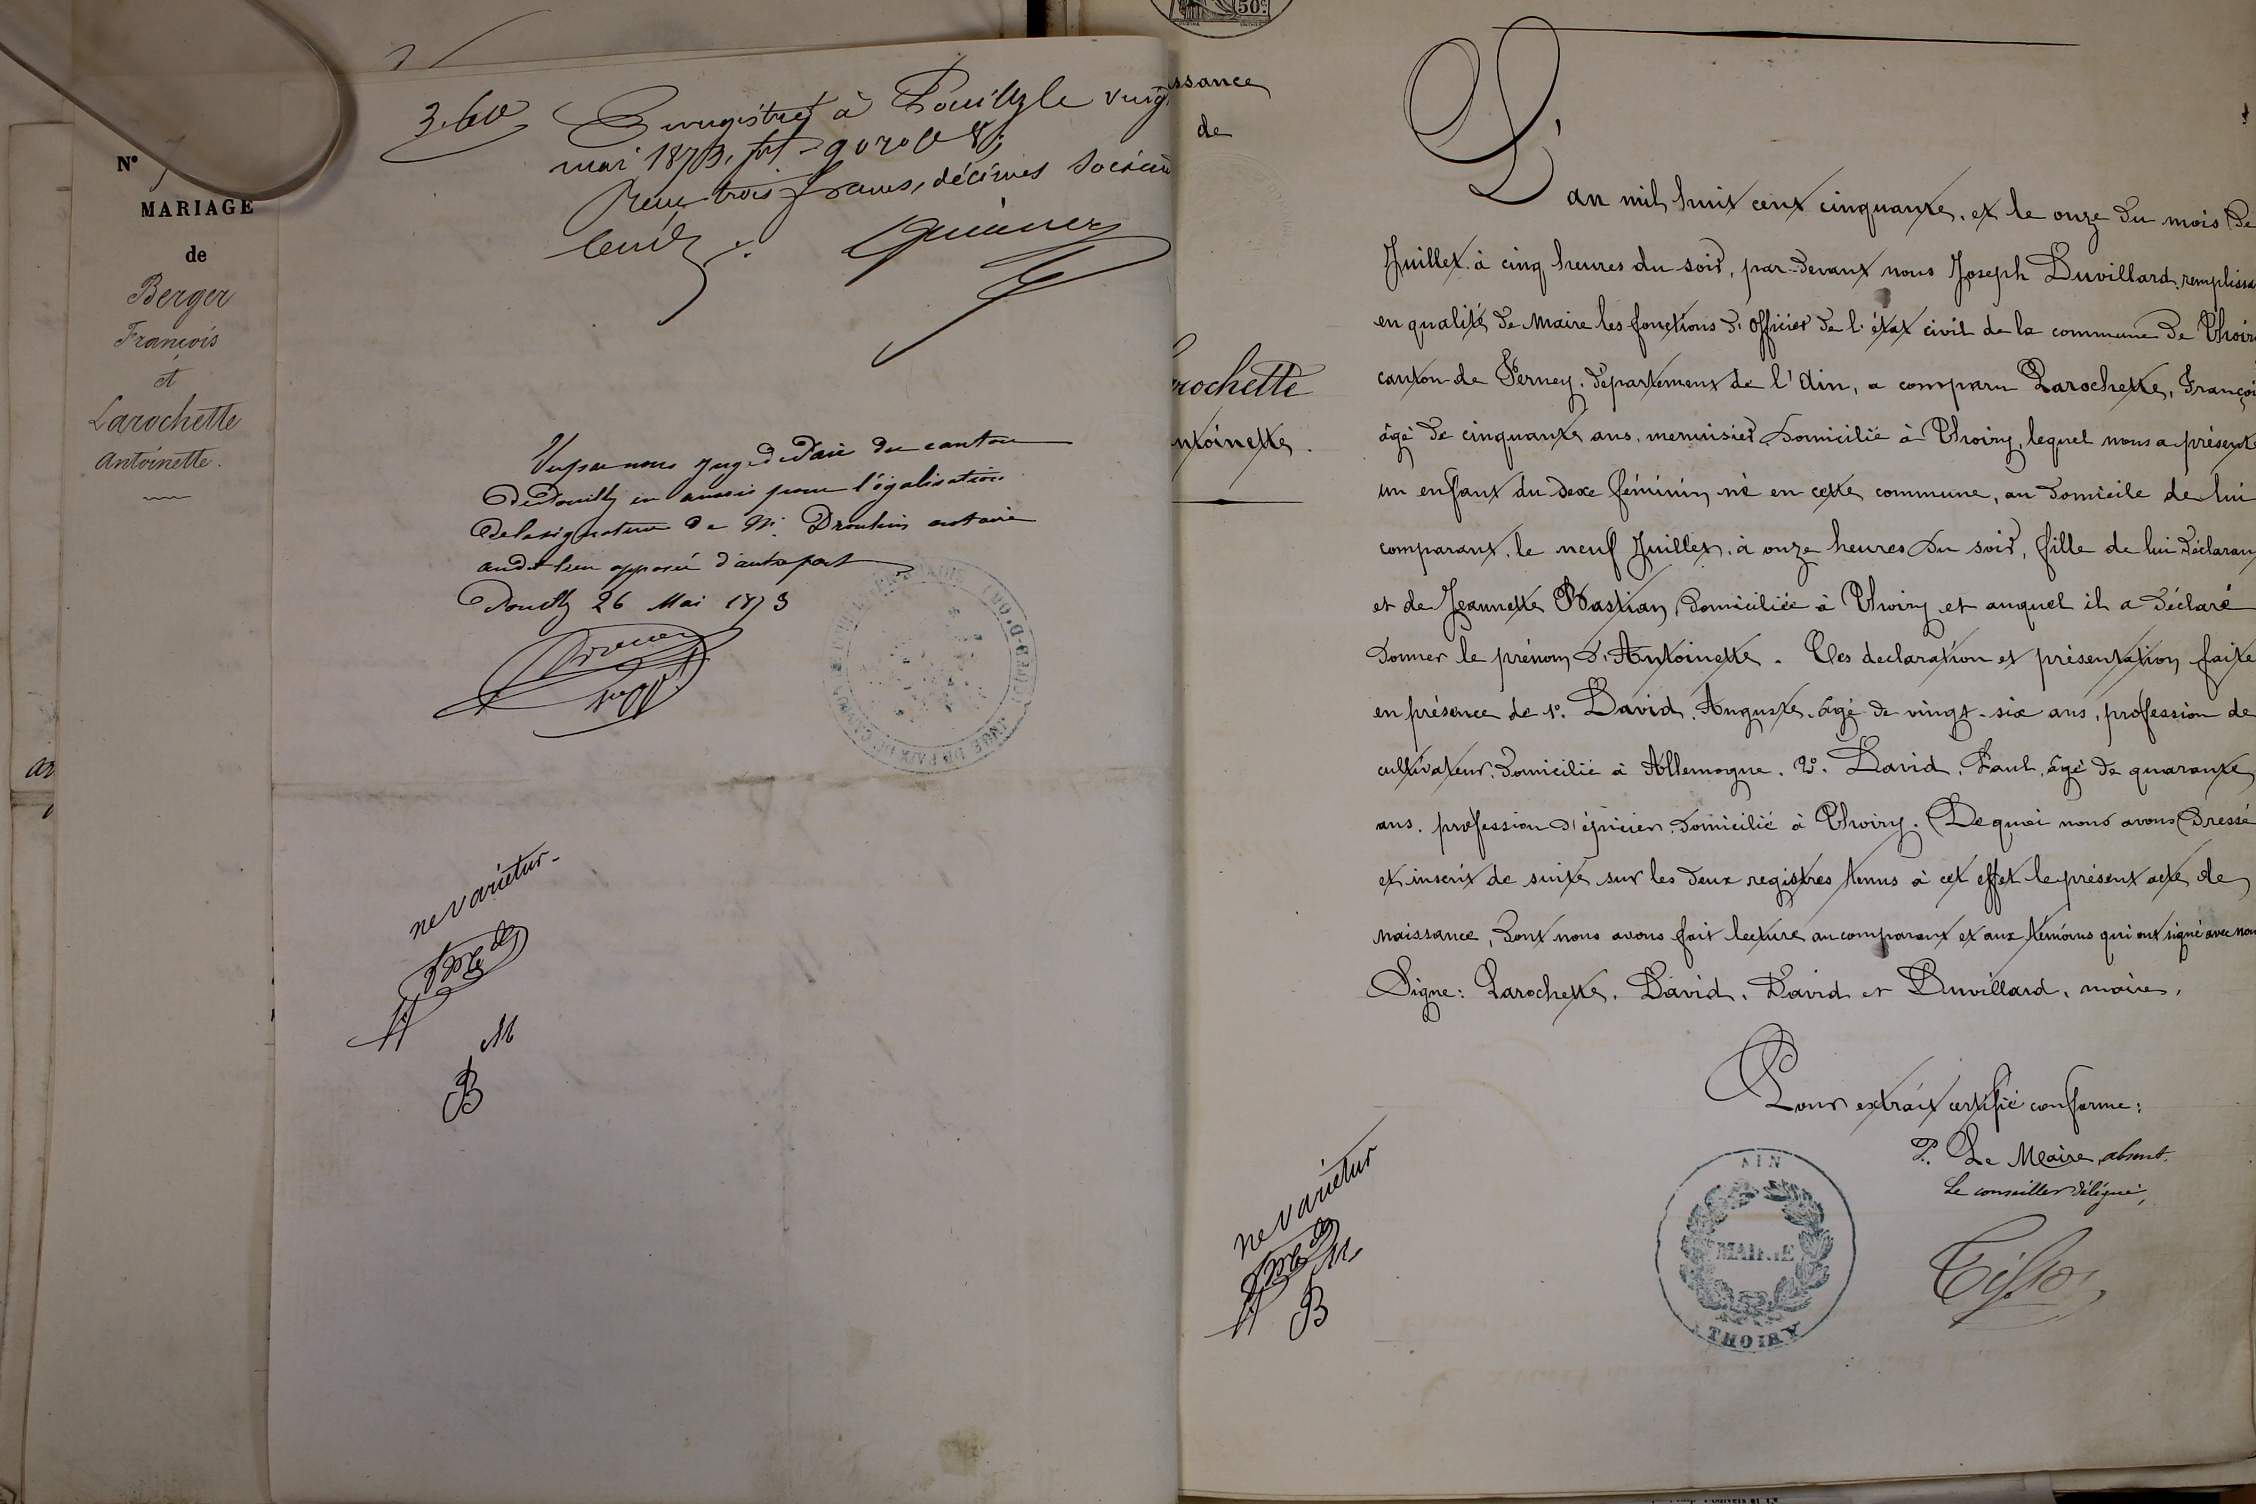 N°
MARIAGE
de
Berger
François
et
Larochette
Antoinette.
3.60
Enregistré à Pouilly le vingt
mai 1873, f°
Reçu trois francs, décimes soixante
cent.
Vu par nous juge de Paix du canton
de Pouilly en auxois pour légalisation
de la signature de M. Drouhin notaire
audit lieu apposée d'autre part
Pouilly 26 Mai 1873
ne varietur.
M
B
50c.
ssance
de
rochette
ntoinette.
L'an mil huit cent cinquante, et le onze du mois de
Juillet à cinq heures du soir, par-devant nous Joseph Duvillard, remplissa
en qualité de Maire les fonctions d'officier de l'état civil de la commune de Thoiry
canton de Ferney, département de l'Ain, a comparu Larochette, Françoi
âgé de cinquante ans, menuisier domicilié à Thoiry, lequel nous a présenté
un enfant du sexe féminin, né en cette commune, au domicile de lui
comparant, le neuf Juillet, à onze heures du soir, fille de lui déclarant
et de Jeannette Bastian, domiciliée à Thoiry et auquel il a déclaré
donner le prénom d'Antoinette. Ces déclaration et présentation faite
en présence de 1°. David, Auguste, âgé de vingt-six ans, profession de
cultivateur, domicilié à Allemogne. 2°. David, Paul, âgé de quarante
ans, profession d'épicier, domicilié à Thoiry. De quoi nous avons dressé
et inscrit de suite sur les deux registres tenus à cet effet le présent acte de
naissance, dont nous avons fait lecture au comparant et aux témoins qui ont signé avec nou
Signé: Larochette, David, David et Duvillard, maire.
Pour extrait certifié conforme:
P. Le Maire, absent.
Le conseiller délégué,
Tissot
AIN
MAIRIE
THOIRY
ne varietur
M
B